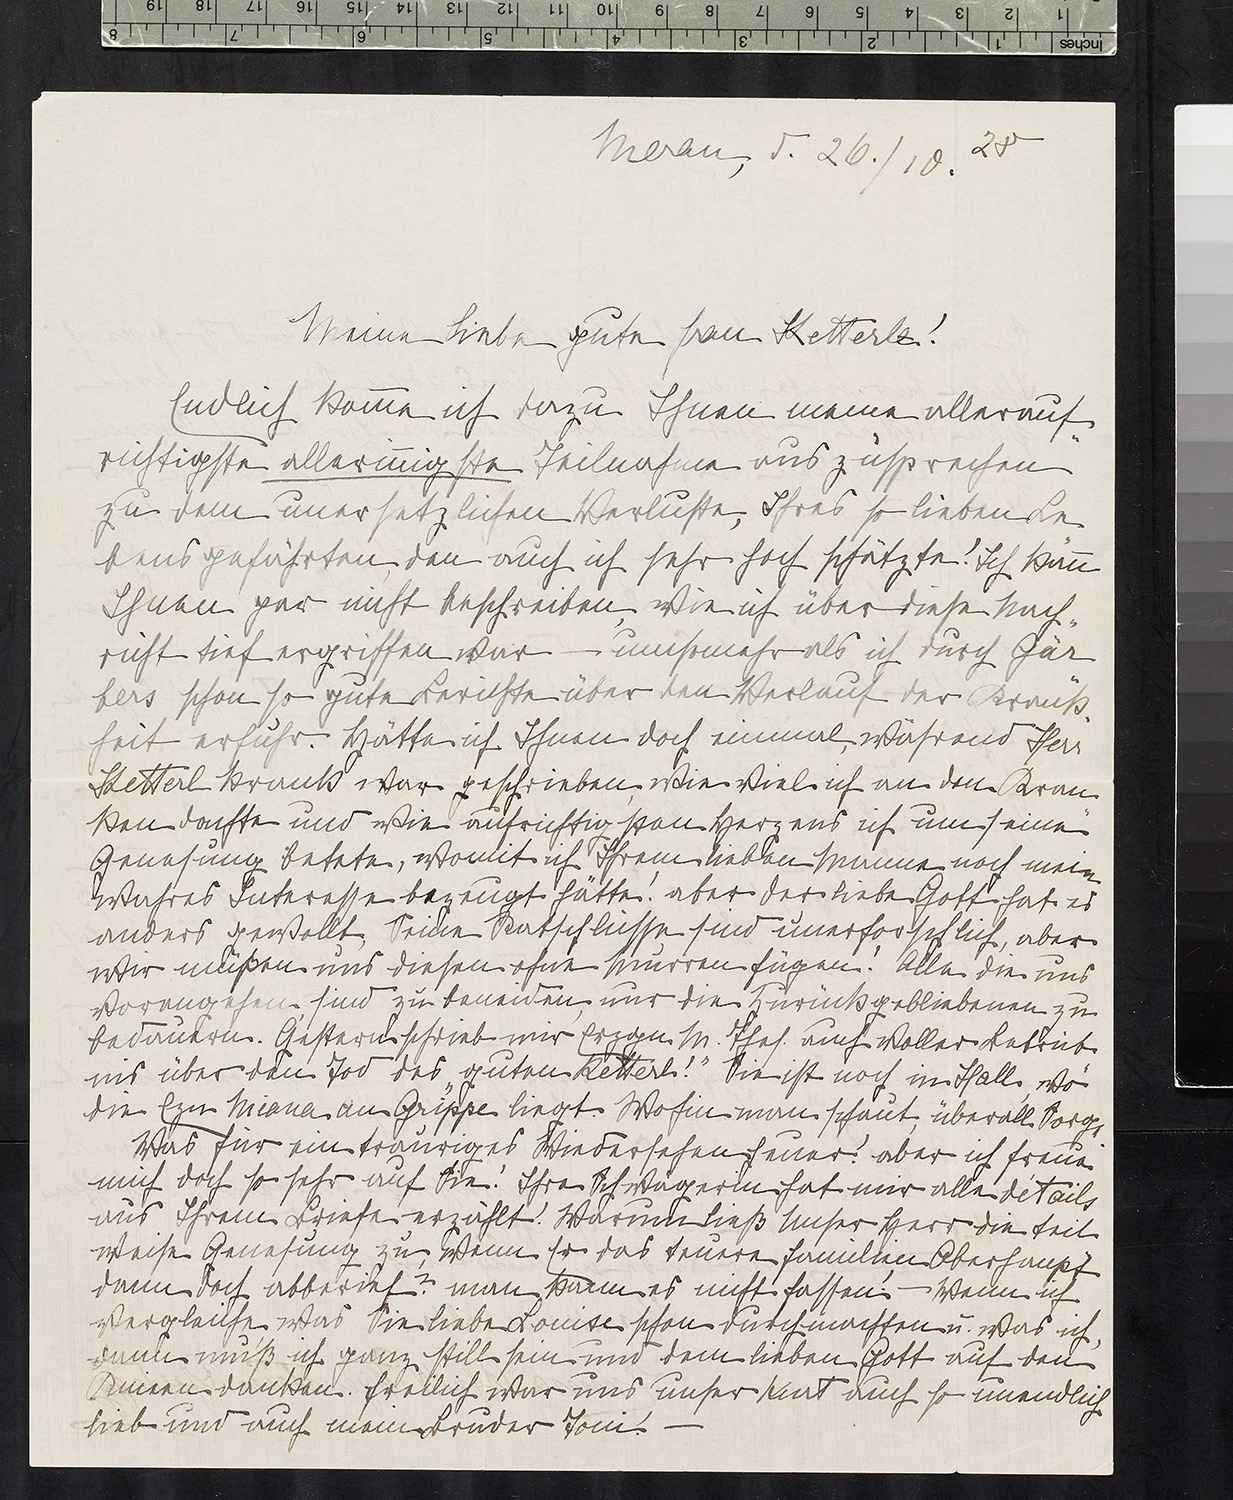 Meran, d. 26./10. 28
Meine liebe gute Frau Ketterle!
Endlich komme ich dazu Ihnen meine allerauf-
richtigste allerinnigste Teilnahme auszusprechen
zu dem unersetzlichen Verluste, Ihres so lieben Le
bensgefährten, den auch ich sehr hoch schätzte! Ich kann
Ihnen gar nicht beschreiben, wie ich über diese Nach-
richt tief ergriffen war — umsomehr als ich durch Gär
bers schon so gute Berichte über den Verlauf der Krank-
heit erfuhr. Hätte ich Ihnen doch einmal, während Herr
Ketterl krank war geschrieben, wie viel ich an den Kran
ken dachte und wie aufrichtig Herzens ich um seine
Genesung betete, womit ich Ihrem lieben Manne noch mein
wahres Interesse bezeugt hätte! aber der liebe Gott hat es
anders gewollt, Seine Ratschlüsse sind unerforschlich, aber
wir müßen uns diesen ohne Murren fügen! Alle die uns
vorangehen, sind zu beneiden, nur die Zurückgebliebenen zu
bedauern. Gestern schrieb mir Erzgn M. Thes. auch voller Betrüb
nis über den Tod des „guten Ketterl!" Sie ist noch in Hall, wo
die Ezn Miana an Grippe liegt. Wohin man schaut, überall Sorge
Was für ein trauriges Wiedersehen heuer! aber ich freue
mich doch so sehr auf Sie! Ihre Schwägerin hat mir alle détails
aus Ihrem Briefe erzählt! Warum ließ Unser Herr die teil
weise Genesung zu, wenn Er das teuere Familien Oberhaupt
dann doch abberief? man kann es nicht fassen! — Wenn ich
vergleiche, was Sie liebe Louise schon durchmachten u. was ich,
dann muß ich ganz still sein und dem lieben Gott auf den
Knieen danken. Freilich war uns unser Kurt auch so unendlich
lieb und auch mein Bruder Toni! —